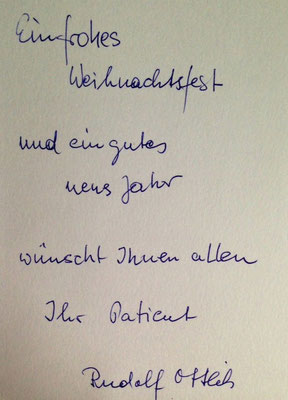 Ein frohes
Weihnachtsfest
und ein gutes
neues Jahr
wünscht Ihnen allen
Ihr Patient
Rudolf